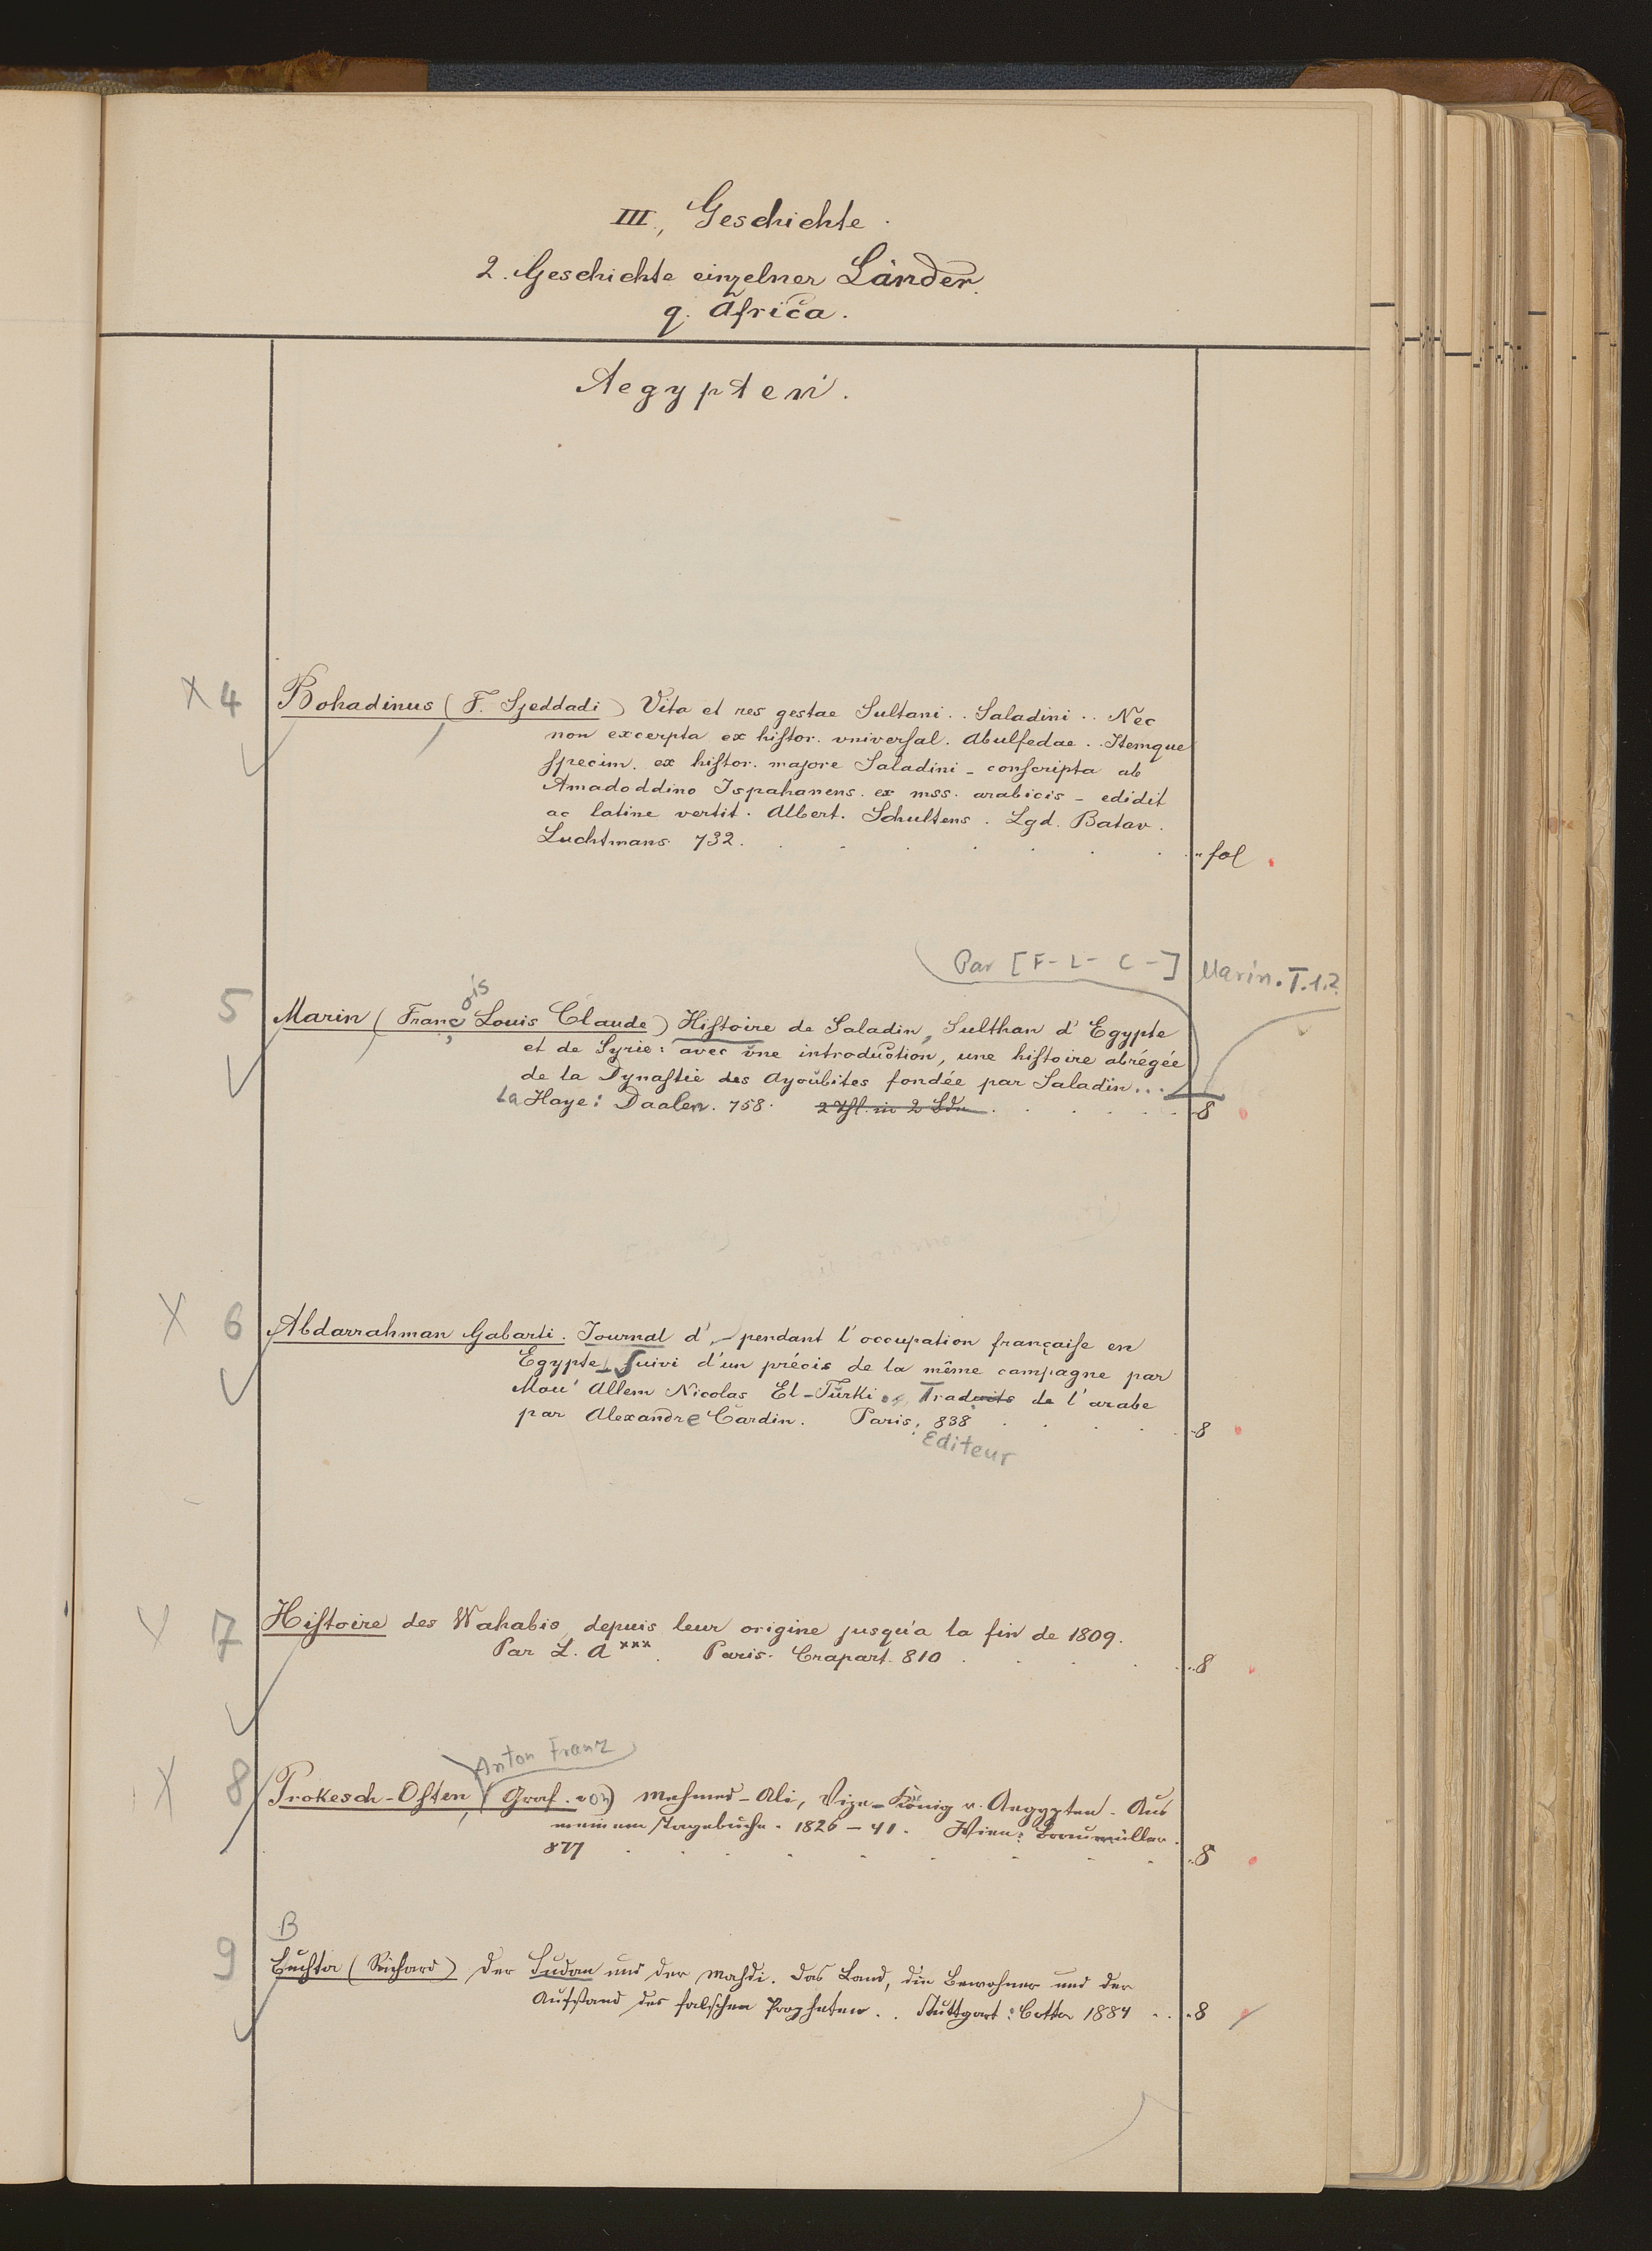 III., Geschichte.
2. Geschichte einzelner Länder.
q. Africa.
Aegypten.
X 4 Bohadinus (F. Sjeddadi) Vita et res gestae Sultani .. Saladini .. Nec
non excerpta ex histor. vniversal. Abulfedae .. Itemque
specim. ex histor. majore Saladini - conscripta ab
Amadoddino Ispahanens. ex mss. arabicis - edidit
ac latine vertit. Albert. Schultens. Lgd. Batav.
Luchtmans 732. fol
Par [F- L- C-] Marin. T.1.2.
ois
5 Marin (Franç Louis Claude) Histoire de Saladin, Sulthan d'Egypte
et de Syrie: avec une introduction, une histoire abrégée
de la Dynastie des Ayoubites fondée par Saladin...
La Haye: Daalen. 758. 2 Thl. in 2 Bdn 8
X 6 Abdarrahman Gabarti. Journal d'- pendant l'occupation française en
Egypte, Suivi d'un précis de la même campagne par
Mou' Allem Nicolas El-Turki. Traduits de l'arabe
par Alexandre Cardin. Paris: 838 8
Editeur
X 7 Histoire des Wahabis, depuis leur origine jusqu'a la fin de 1809.
Par L. A xxx. Paris. Crapart. 810 8
Anton Franz
X 8 Prokesch-Osten (Graf. von) Mehmed-Ali, Vize-König v. Aegypten. Aus
meinem Tagebuche. 1826-41. Wien: Braumüller.
877 8
B
9 Buchta (Richard) Der Sudan und der Mahdi. Das Land, die Bewohner und der
Aufstand des falschen Propheten .. Stuttgart: Cotta 1884 8